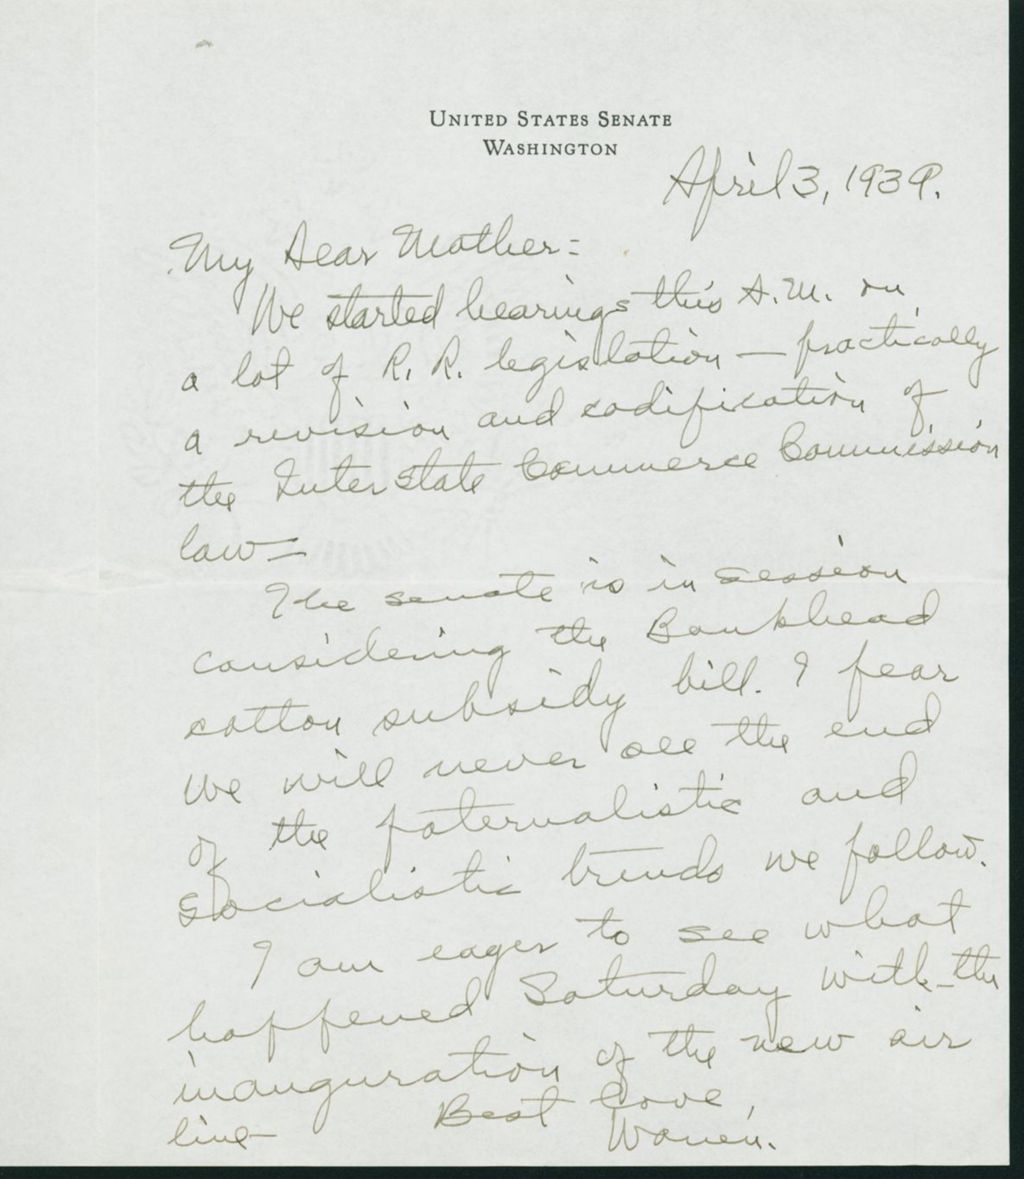 UNITED STATES SENATE
WASHINGTON
April 3, 1939.
My Dear Mother:
We started hearings this A.M. on
a lot of R.R. legislation — practically
a revision and codification of
the Interstate Commerce Commission
law =
The senate is in session
considering the Bankhead
cotton subsidy bill. I fear
we will never see the end
of the paternalistic and
socialistic trends we follow.
I am eager to see what
happened Saturday with the
inauguration of the new air
line — Best love,
Warren.